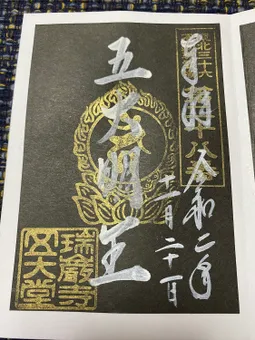 北三十六
奉拝
令和二年
十一月二十一日
五大明王
瑞巌寺
五大堂